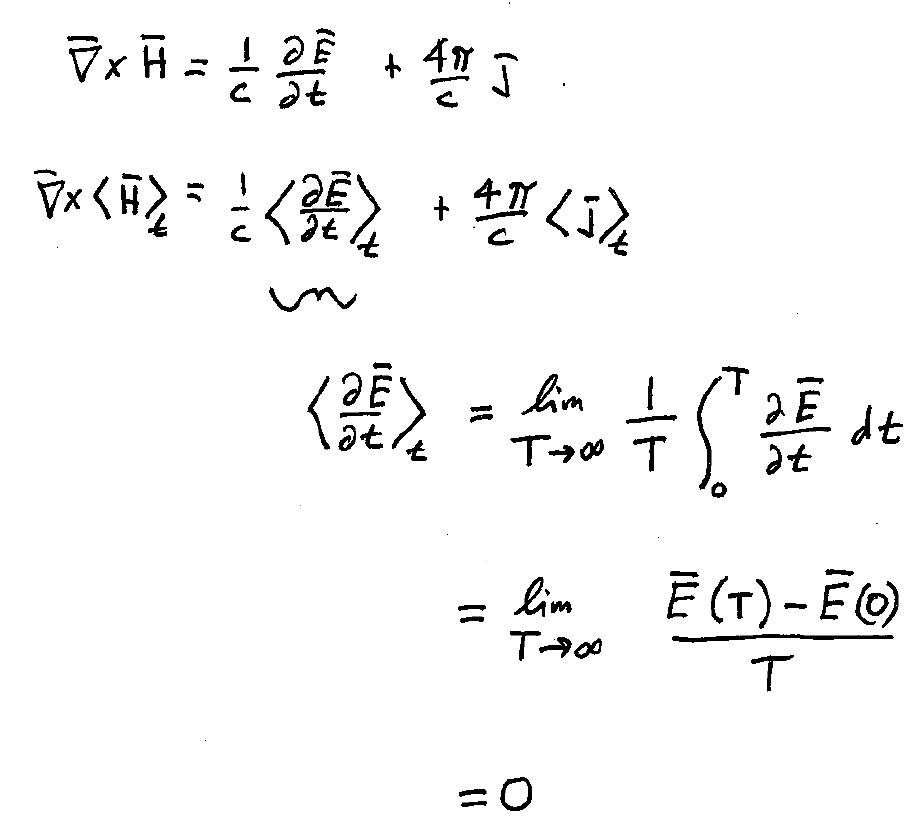 ∇̅ × H̅ = 1/c ∂E̅/∂t + 4π/c j̅
∇̅ × ⟨H̅⟩_t = 1/c ⟨∂E̅/∂t⟩_t + 4π/c ⟨j̅⟩_t
⟨∂E̅/∂t⟩_t = lim_{T→∞} 1/T ∫_0^T ∂E̅/∂t dt
= lim_{T→∞} (E̅(T) − E̅(0))/T
= 0